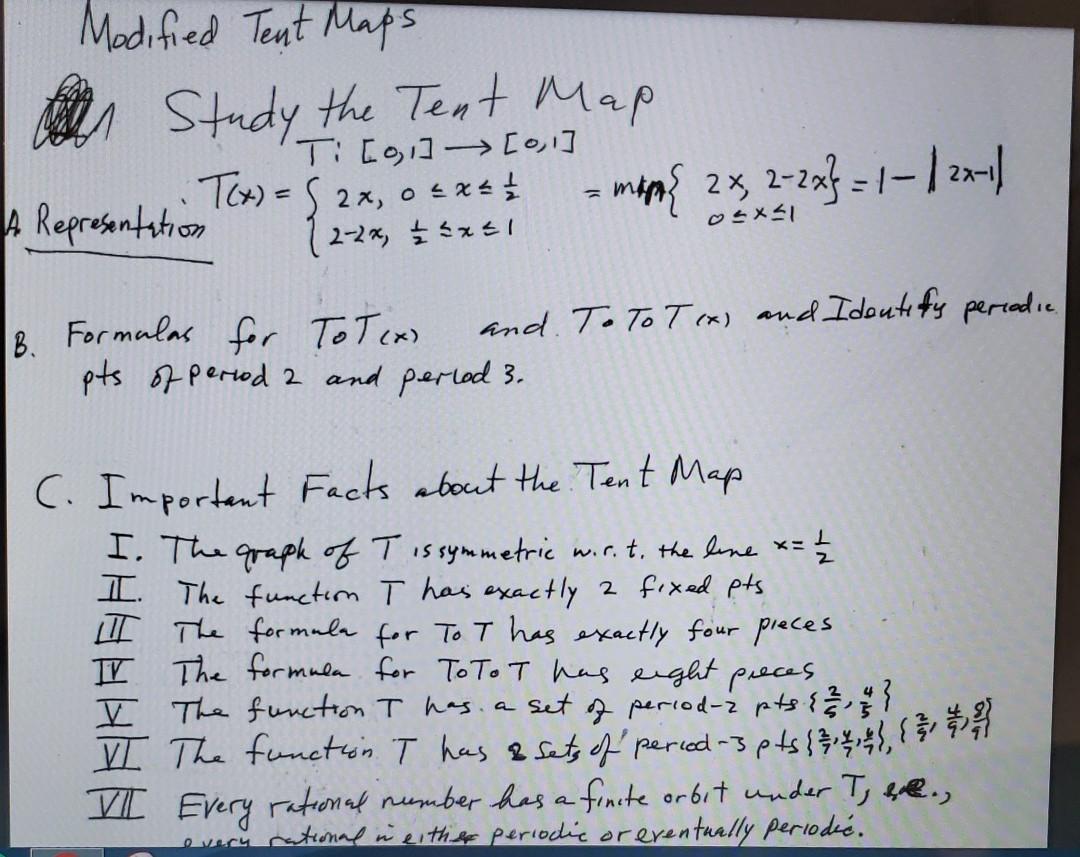 Modified Tent Maps
Study the Tent Map
T: [0,1] → [0,1]
A. Representation
T(x) = { 2x, 0 ≤ x ≤ 1/2
2-2x, 1/2 ≤ x ≤ 1
= min{ 2x, 2-2x} = 1 - | 2x-1|
0 ≤ x ≤ 1
B. Formulas for ToT(x) and ToToT(x) and Identify periodic
pts of period 2 and period 3.
C. Important Facts about the Tent Map
I. The graph of T is symmetric w.r.t. the line x = 1/2
II. The function T has exactly 2 fixed pts
III The formula for ToT has exactly four pieces
IV The formula for ToToT has eight pieces
V The function T has a set of period-2 pts {2/5, 4/5}
VI The function T has 2 sets of period-3 pts {2/7, 4/7, 6/7}, {2/9, 4/9, 8/9}
VII Every rational number has a finite orbit under T, i.e.,
every rational is either periodic or eventually periodic.